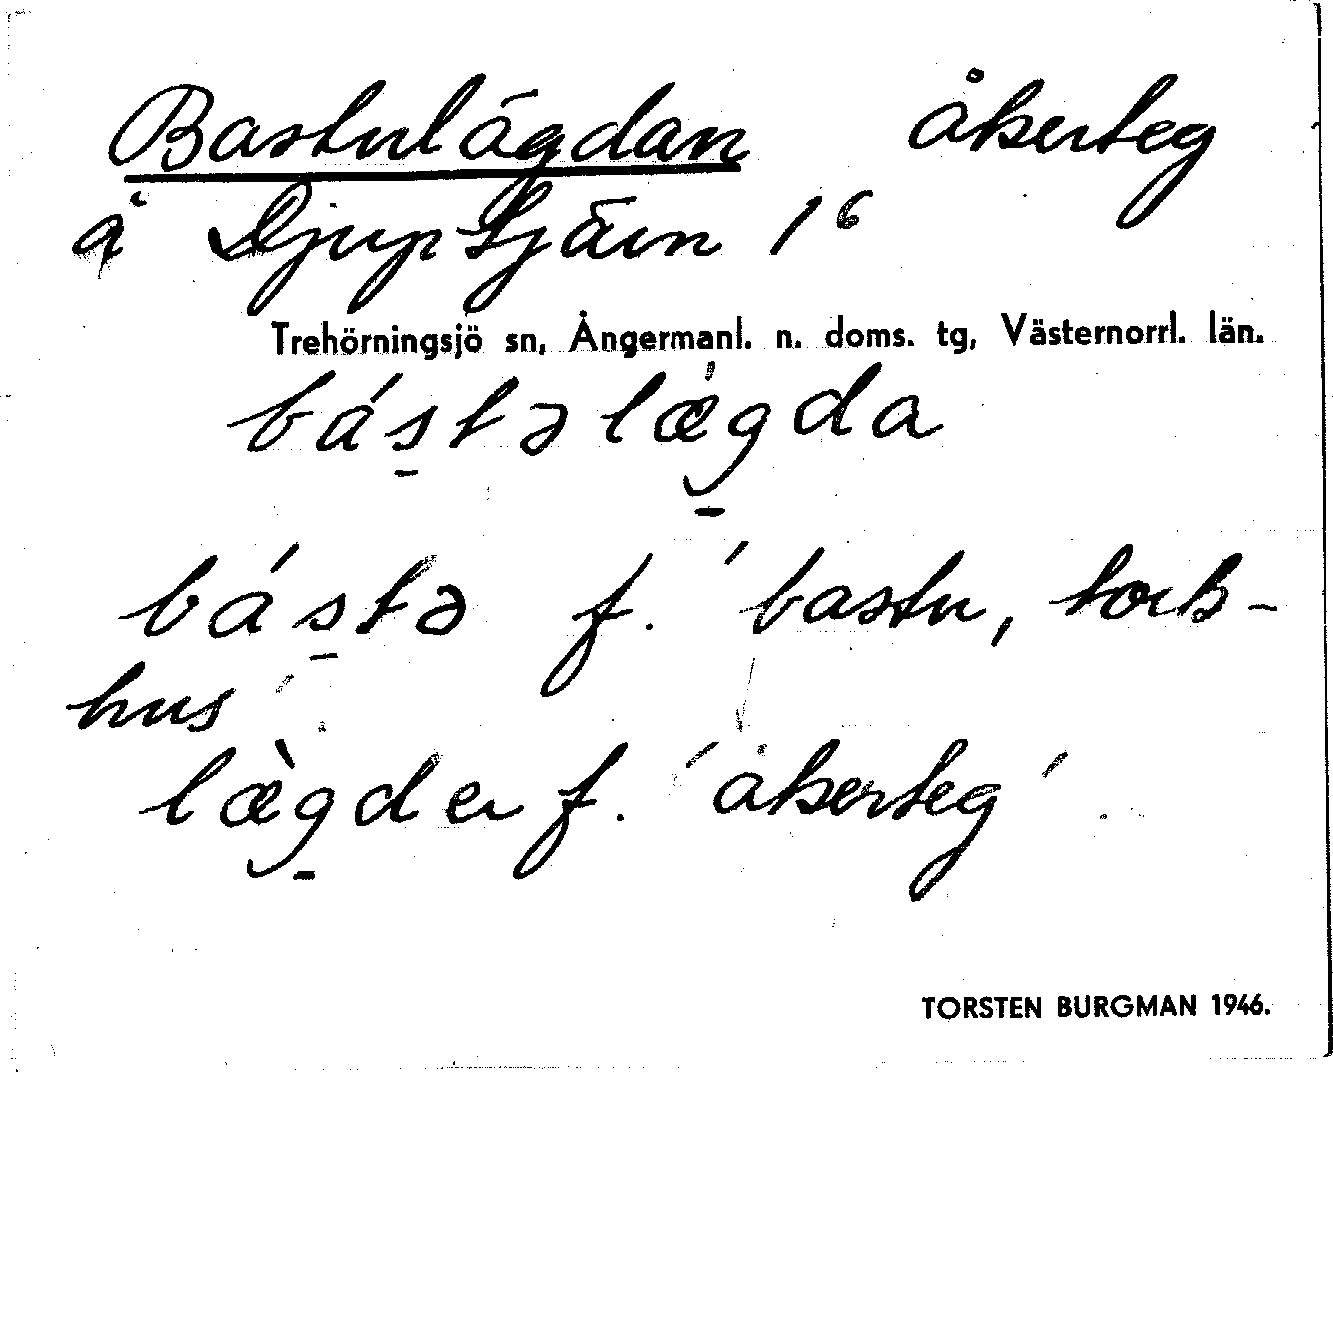 Bastulägdan åkerteg
å Djuptjärn 1⁶
Trehörningsjö sn, Ångermanl. n. doms. tg, Västernorrl. län.
bás̱təlǽg̱da
bás̱tə f. 'bastu, tork-
hus'
læ̀g̱der f. 'åkerteg'.
TORSTEN BURGMAN 1946.